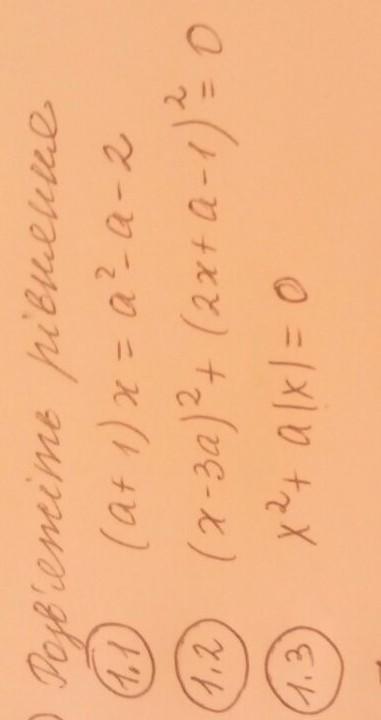 ) Розв'яжіть рівняння
1.1 (a+1)x = a²-a-2
1.2 (x-3a)² + (2x+a-1)² = 0
1.3 x² + a|x| = 0